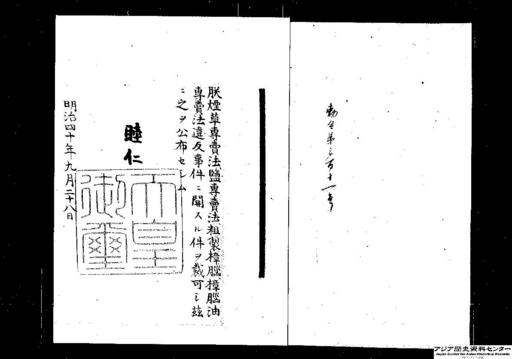 勅令第三百十一号
朕煙草専賣法塩専賣法粗製樟腦樟腦油
専賣法違反事件ニ關スル件ヲ裁可シ玆
ニ之ヲ公布セシム
睦仁
天皇御璽
明治四十年九月二十八日
アジア歴史資料センター
Japan Center for Asian Historical Records